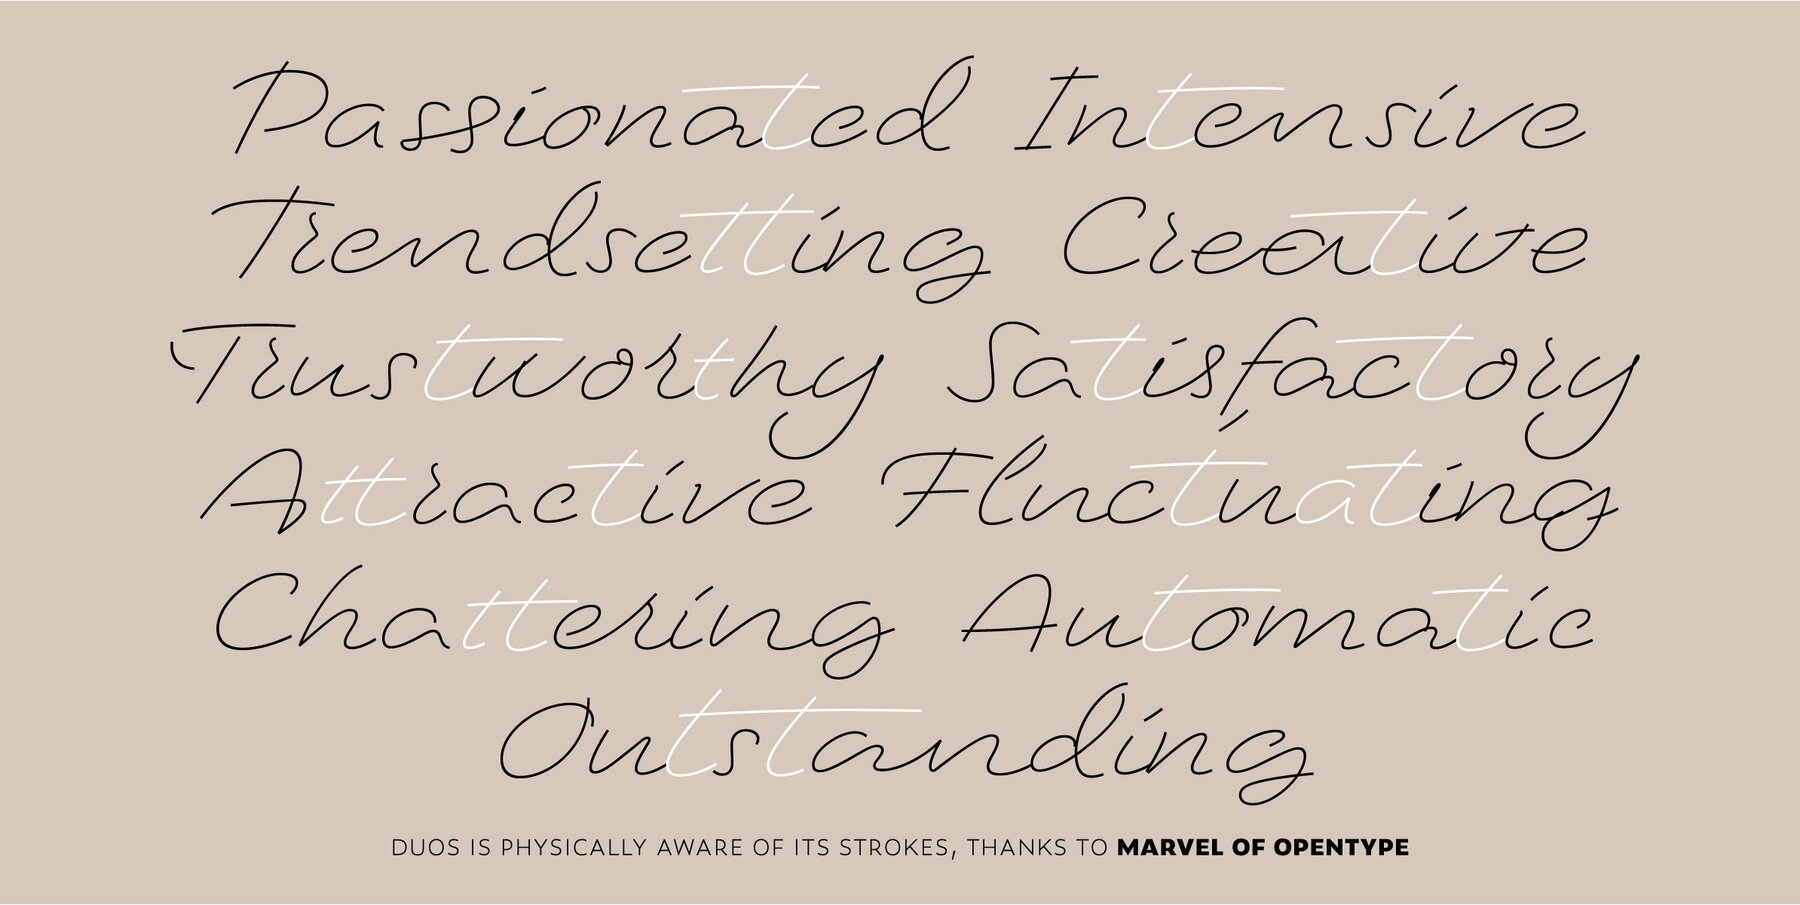 Passionated Intensive
Trendsetting Creative
Trustworthy Satisfactory
Attractive Fluctuating
Chattering Automatic
Outstanding
DUOS IS PHYSICALLY AWARE OF ITS STROKES, THANKS TO MARVEL OF OPENTYPE